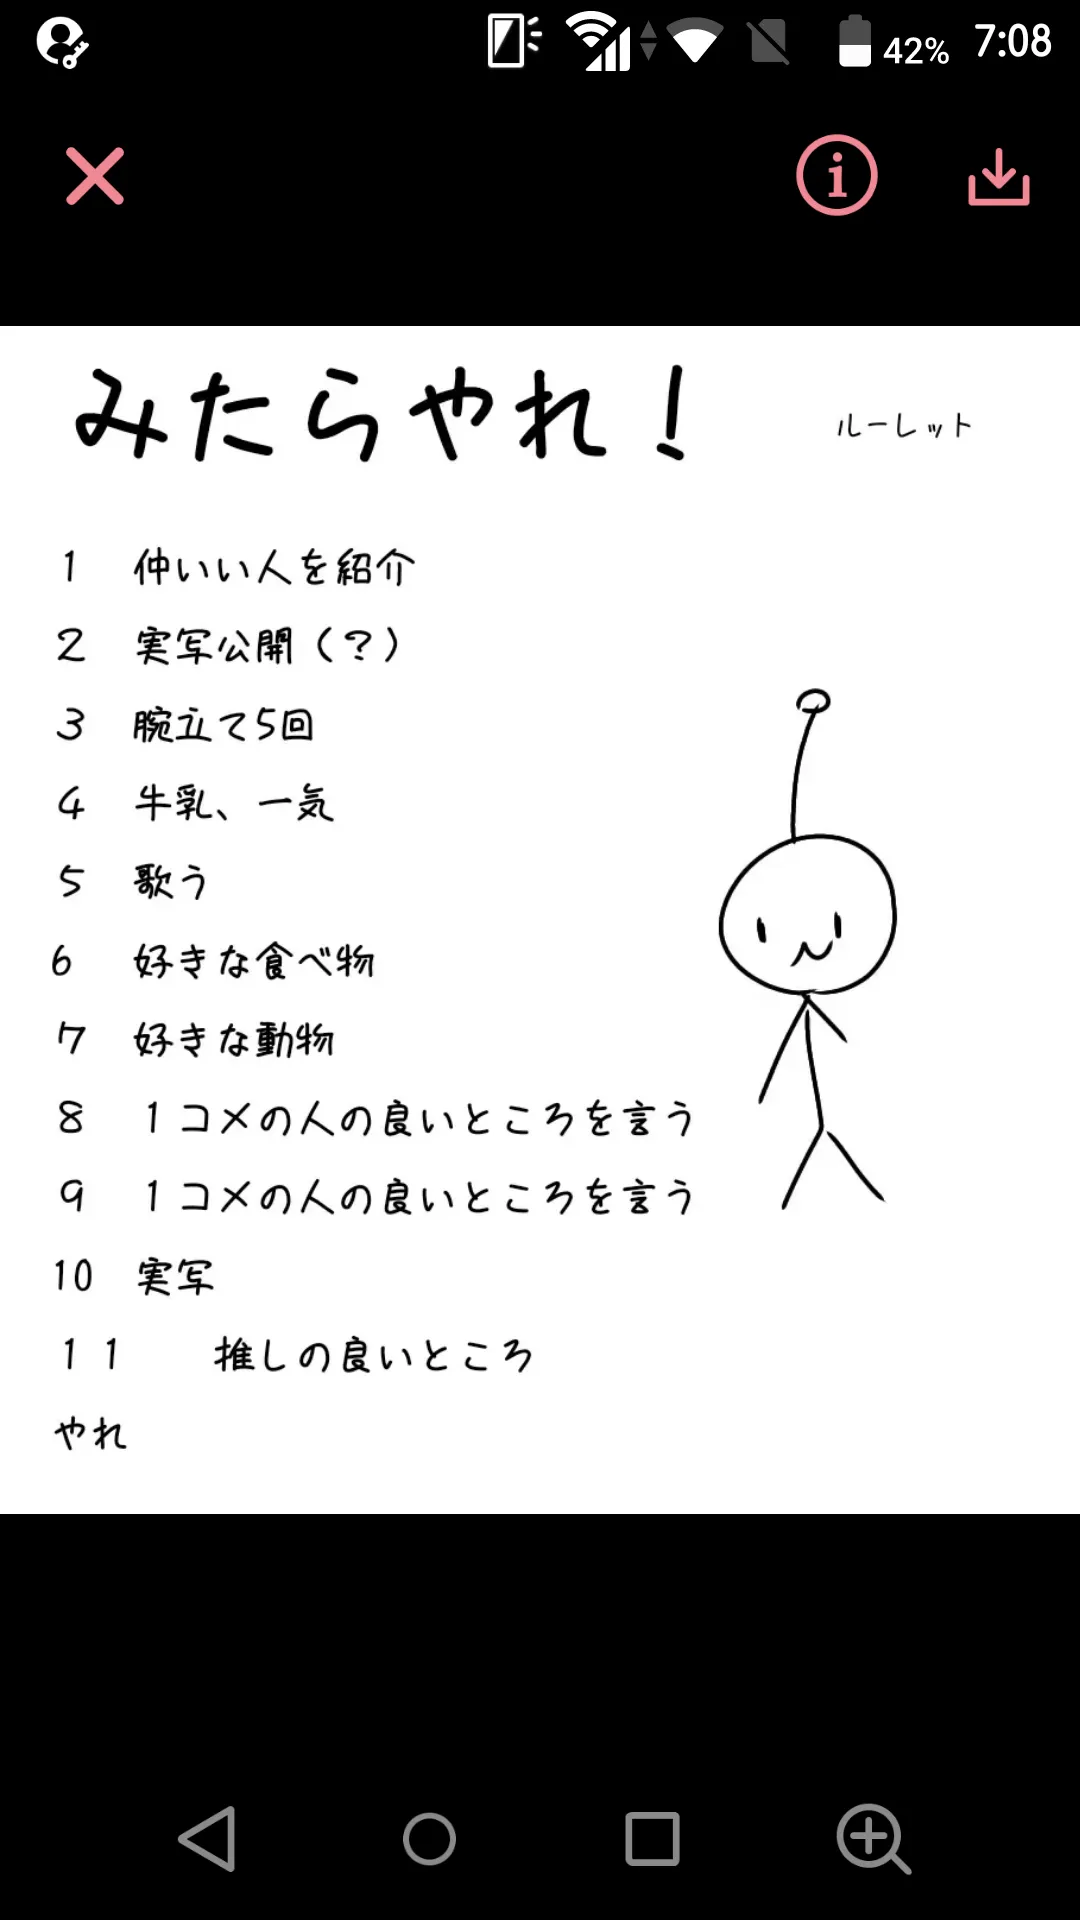 42% 7:08
みたらやれ！ ルーレット
1 仲いい人を紹介
2 実写公開（？）
3 腕立て5回
4 牛乳、一気
5 歌う
6 好きな食べ物
7 好きな動物
8 1コメの人の良いところを言う
9 1コメの人の良いところを言う
10 実写
11 推しの良いところ
やれ